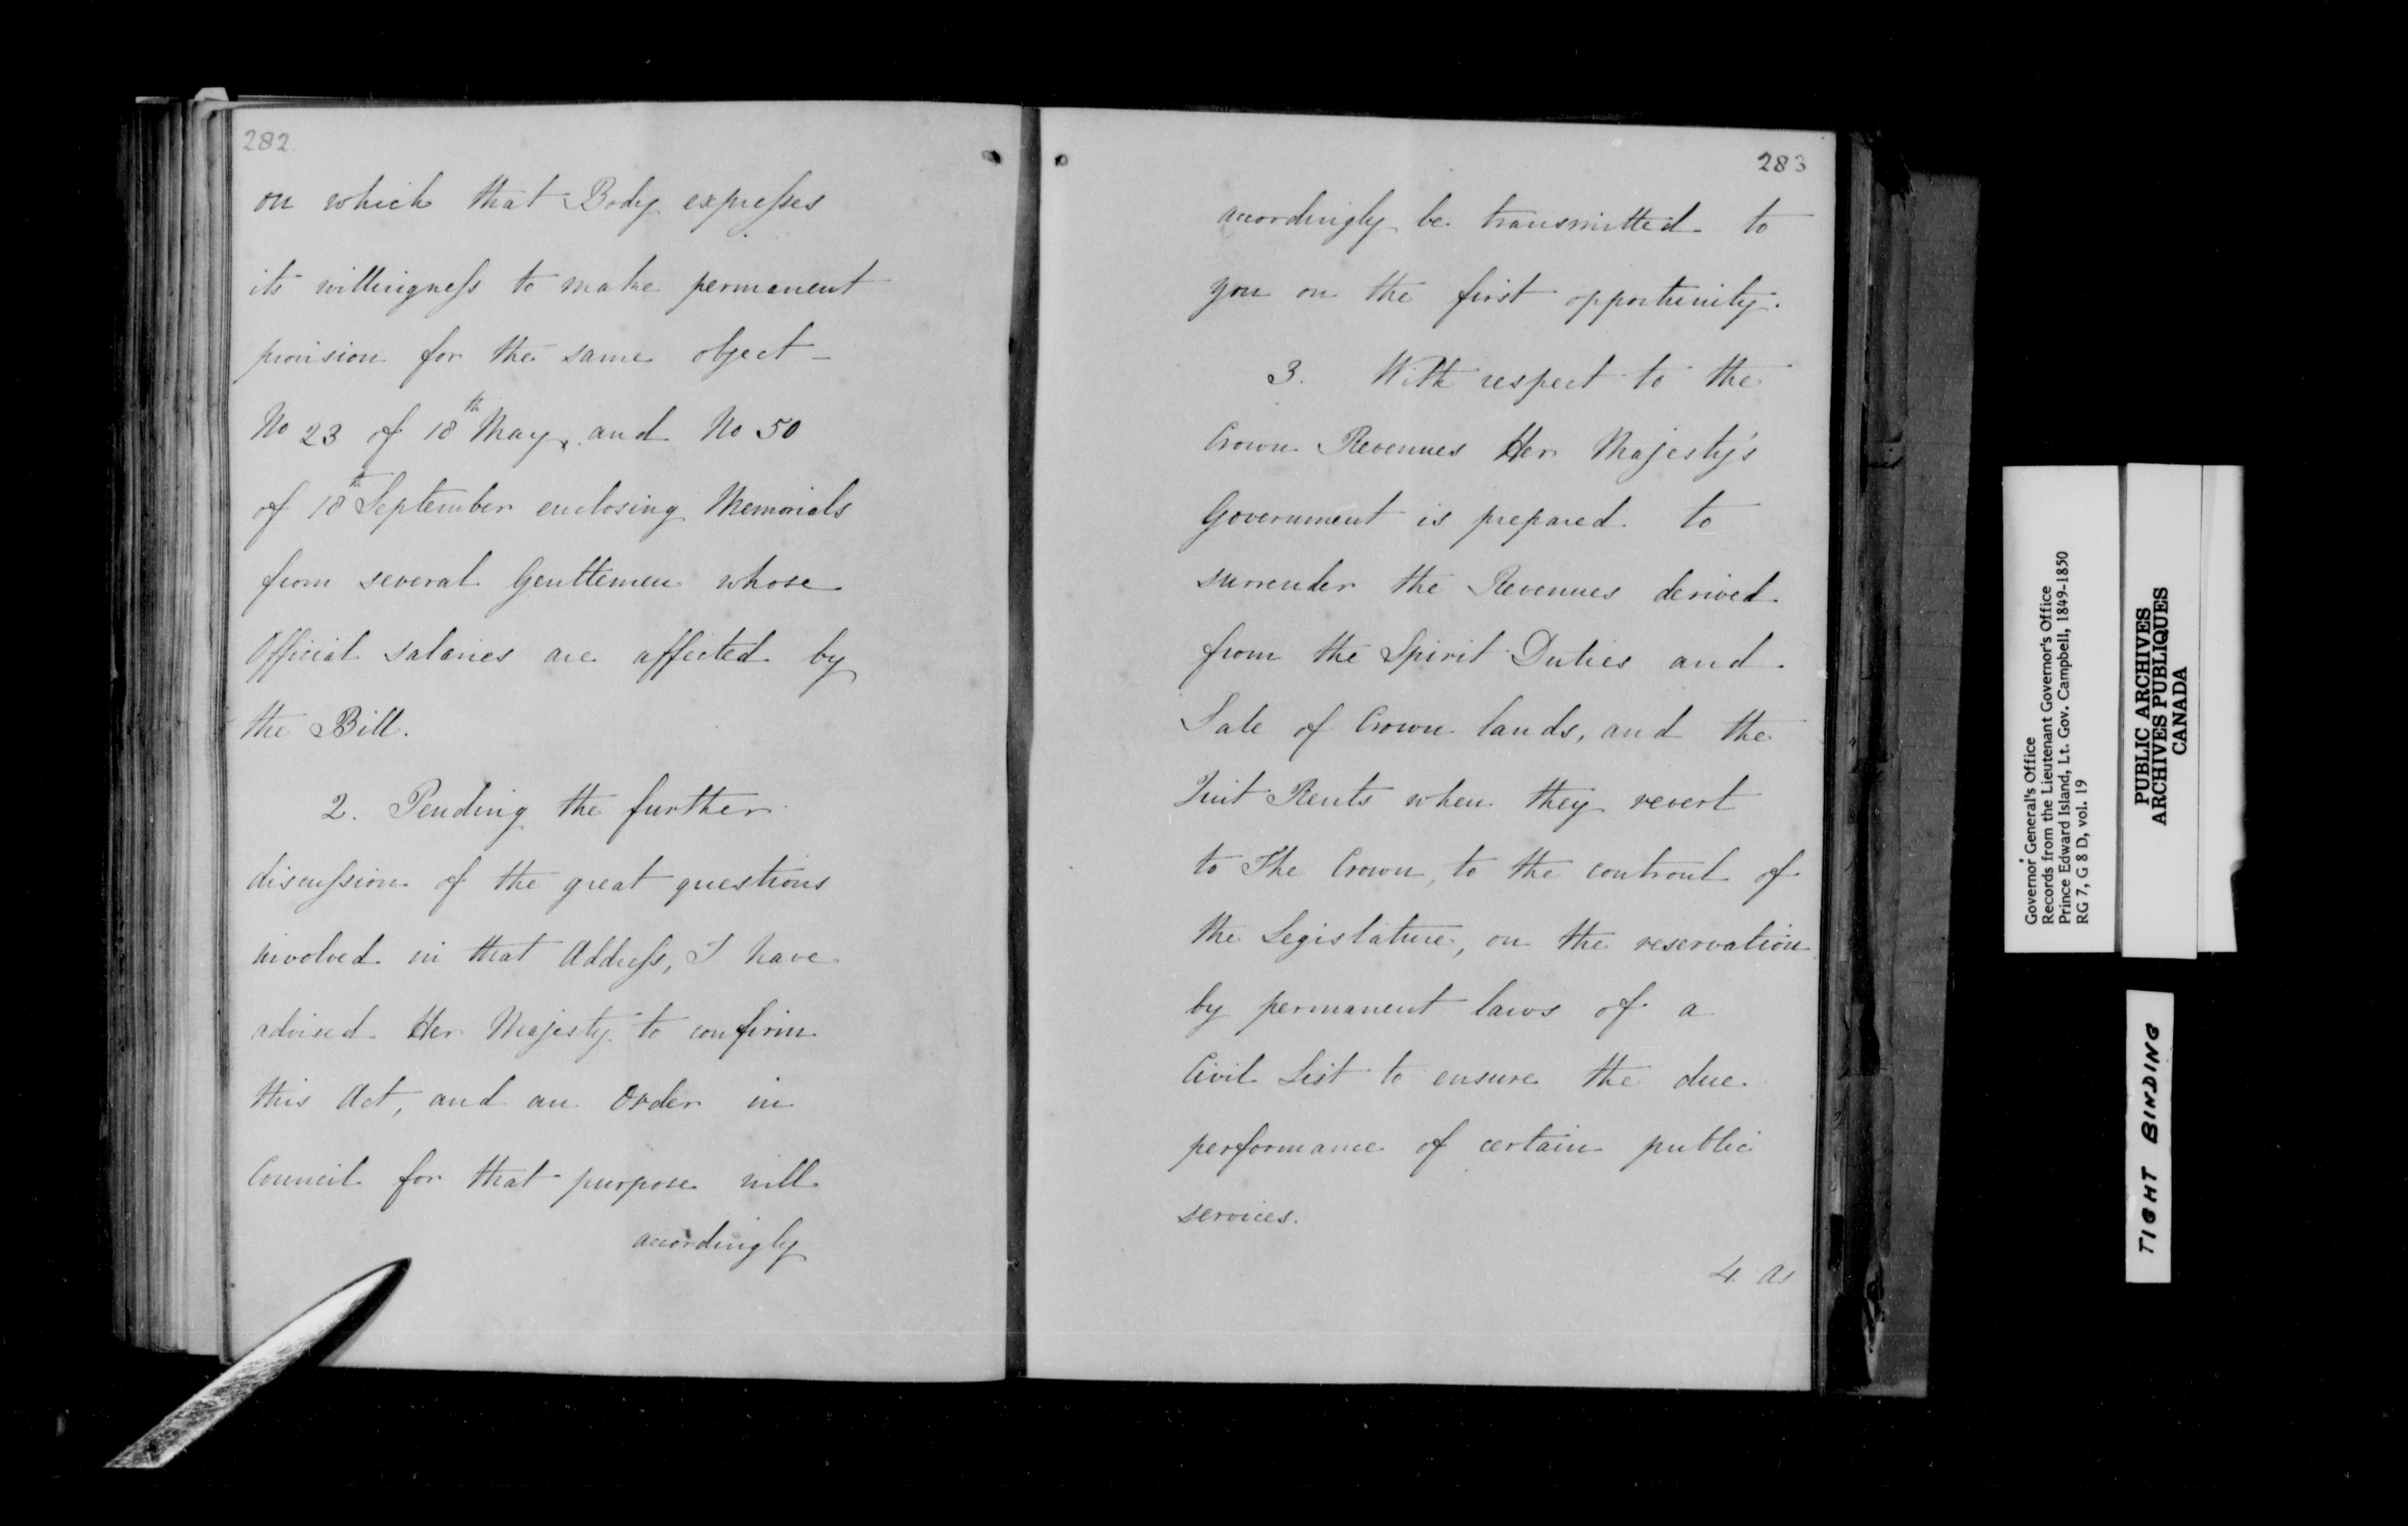 282
on which that Body expresses
its willingness to make permanent
provision for the same object —
No 23 of 18th May, and No 50
of 18th September enclosing Memorials
from several Gentlemen whose
Official salaries are affected by
the Bill.
2. Pending the further
discussion of the great questions
involved in that Address, I have
advised Her Majesty to confirm
this Act, and an Order in
Council for that purpose will
accordingly
283
accordingly be transmitted to
you on the first opportunity.
3. With respect to the
Crown Revenues Her Majesty's
Government is prepared to
surrender the Revenues derived
from the Spirit Duties and
Sale of Crown lands, and the
Quit Rents when they revert
to The Crown, to the controul of
the Legislature, on the reservation
by permanent laws of a
Civil List to ensure the due
performance of certain public
services.
4. As
Governor General's Office
Records from the Lieutenant Governor's Office
Prince Edward Island, Lt. Gov. Campbell, 1849-1850
RG 7, G 8 D, vol. 19
PUBLIC ARCHIVES
ARCHIVES PUBLIQUES
CANADA
TIGHT BINDING